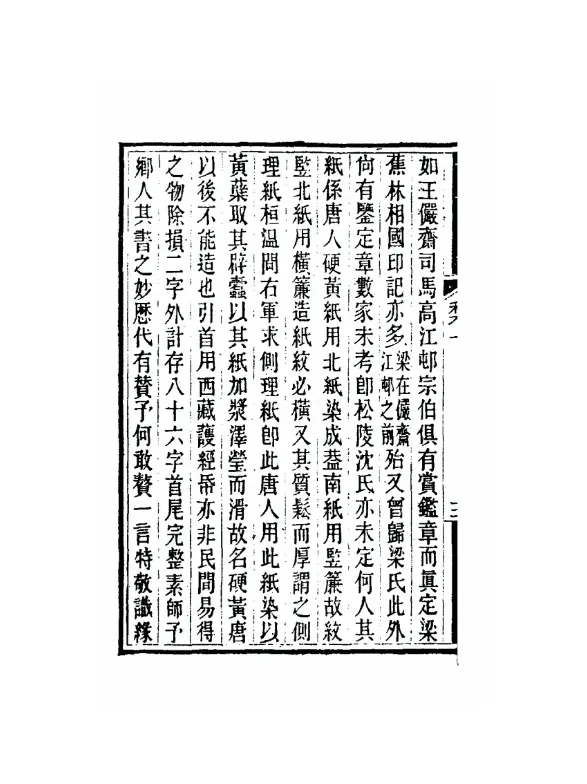 如王儼齋司馬高江邨宗伯俱有賞鑑章而眞定梁
蕉林相國印記亦多梁在儼齋江邨之前殆又曾歸梁氏此外
尙有鑒定章數家未考卽松陵沈氏亦未定何人其
紙係唐人硬黃紙用北紙染成葢南紙用竪簾故紋
竪北紙用橫簾造紙紋必橫又其質鬆而厚謂之側
理紙桓温問右軍求側理紙卽此唐人用此紙染以
黃蘗取其辟蠹以其紙加漿澤瑩而滑故名硬黃唐
以後不能造也引首用西藏護經帋亦非民間易得
之物除損二字外計存八十六字首尾完整素師予
鄉人其書之妙歷代有贊予何敢贅一言特敬識緣